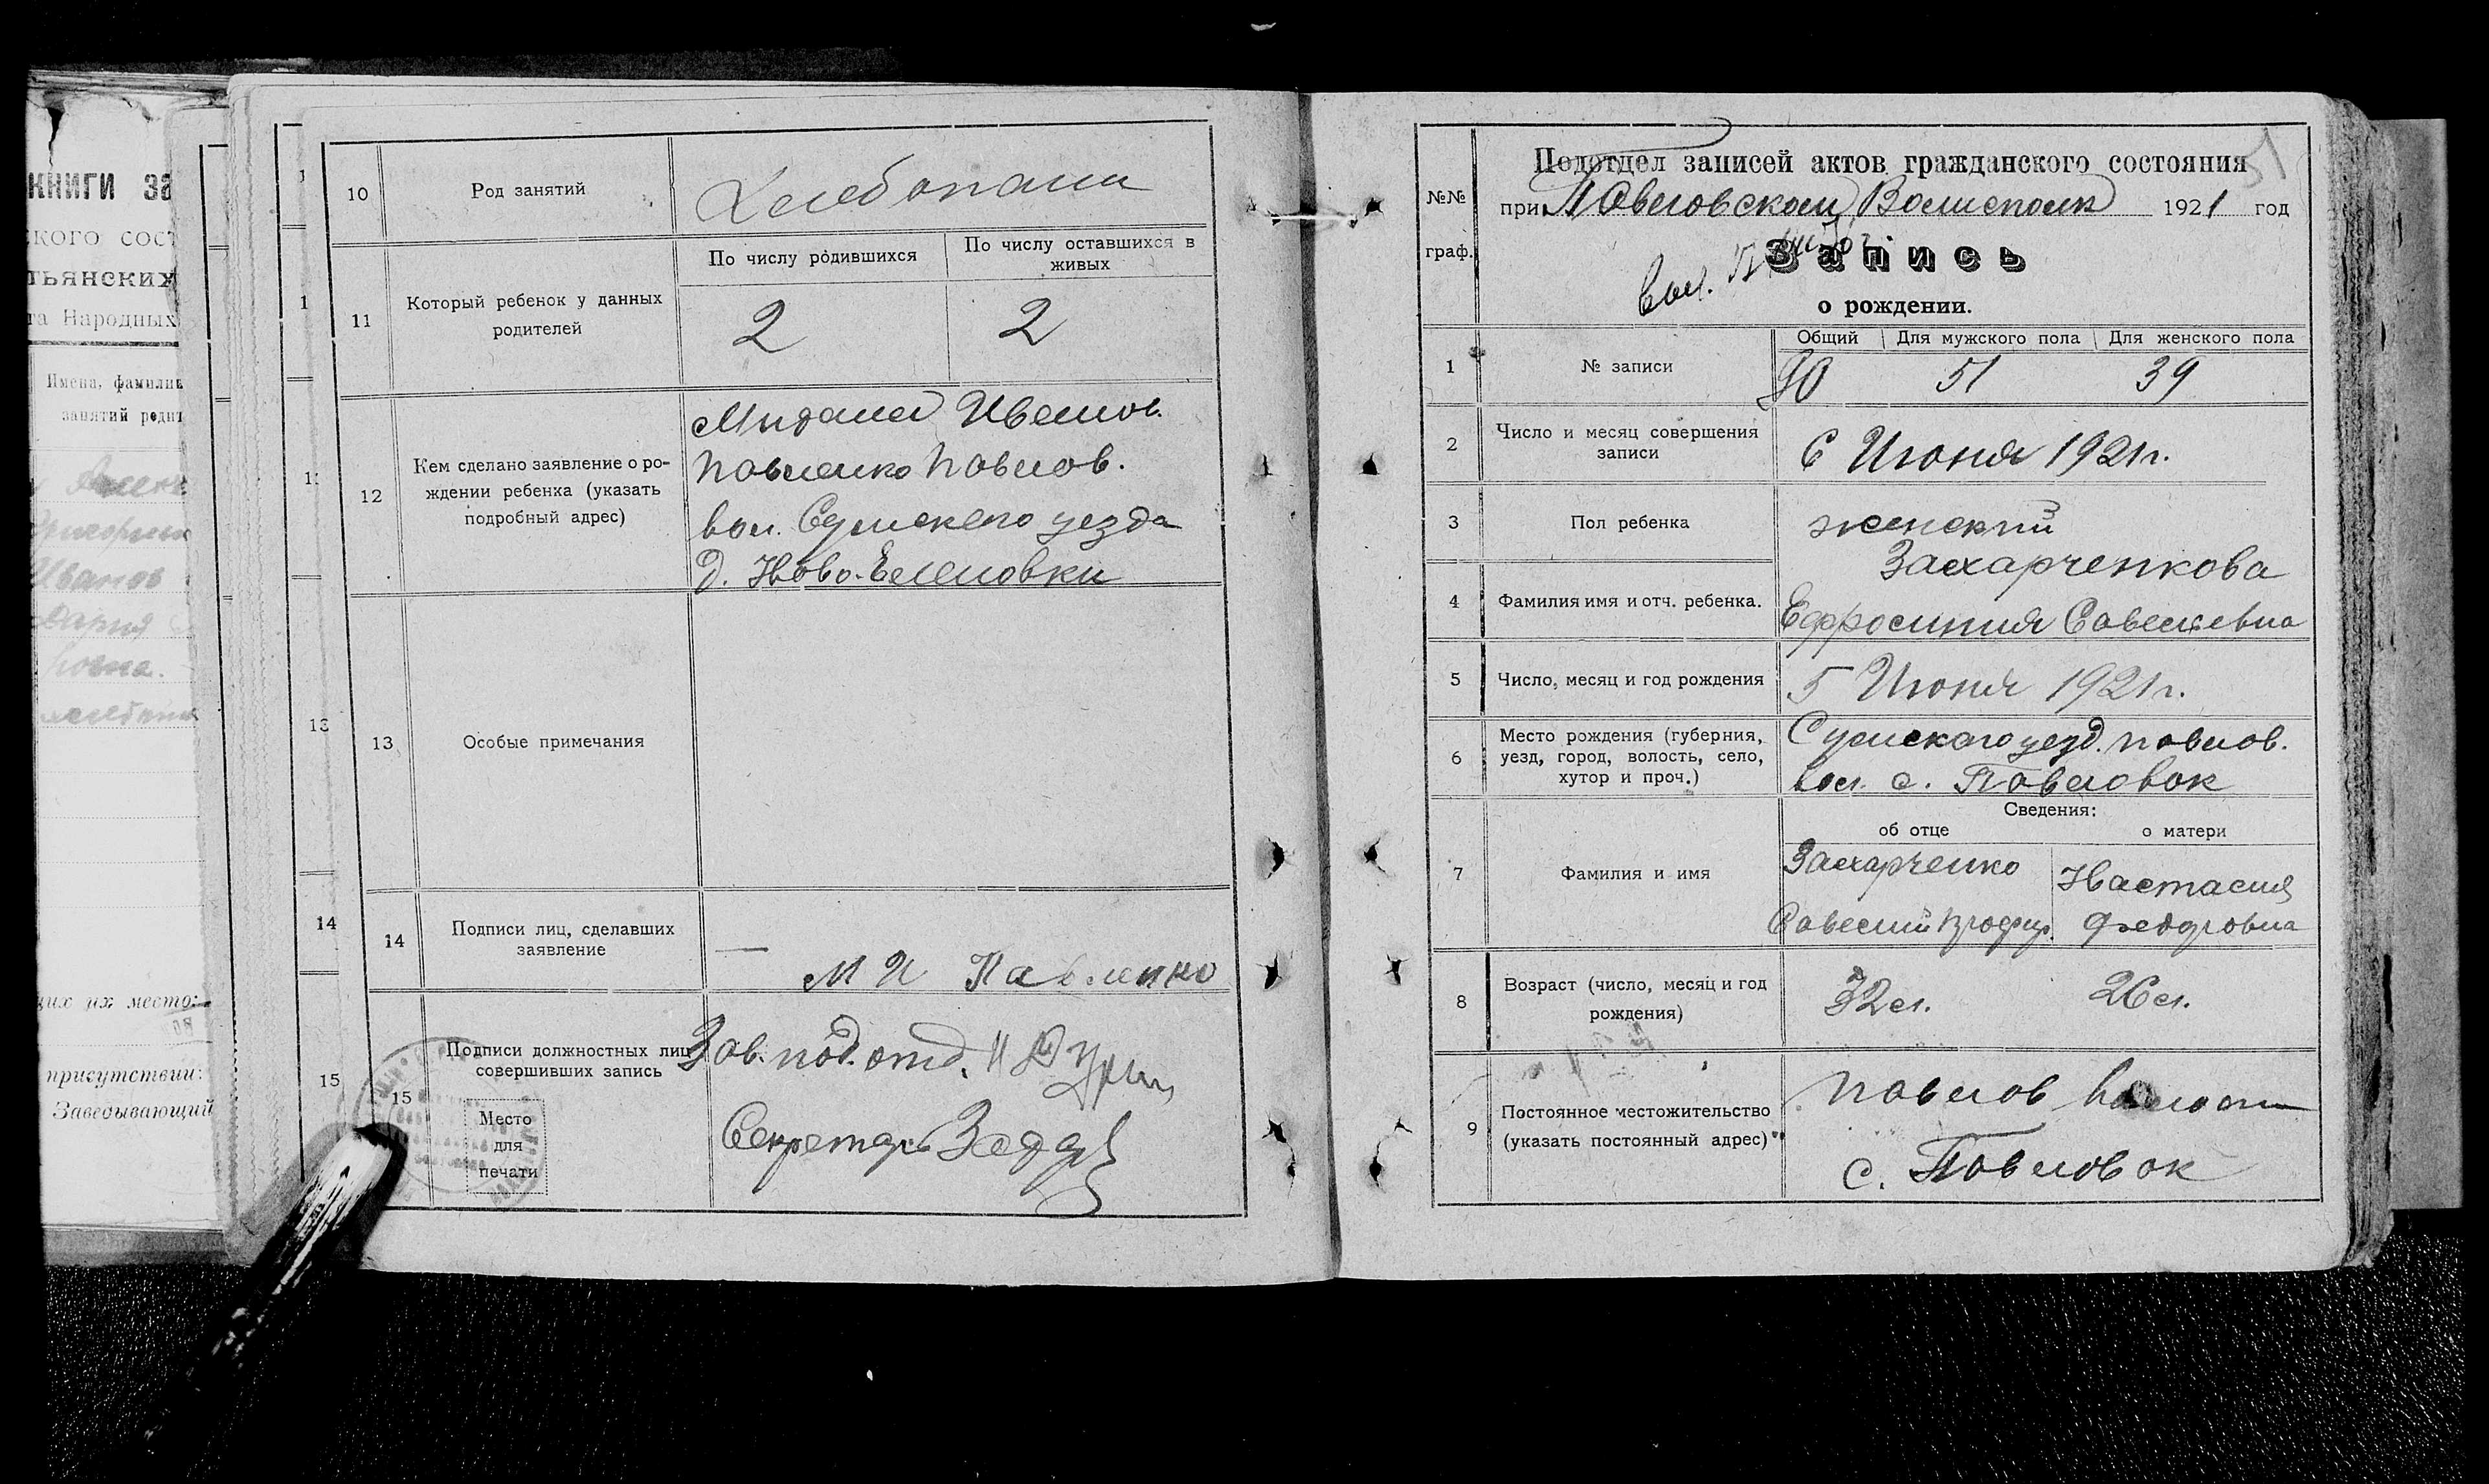 КНИГИ ЗА
Имена, фамилии
занятий
их место:
присутствии:
Заведывающий
10 Род занятий
11 Который ребенок у данных
родителей
По числу родившихся По числу оставшихся в
живых
2 2
12 Кем сделано заявление о ро-
ждении ребенка (указать
подробный адрес)
Павленко Павлов.
вол. Сумского уезда
д. Ново-
13 Особые примечания
14 Подписи лиц, сделавших
заявление
М И Павленко
15 Подписи должностных лиц
совершивших запись
Зав. под. отд.
Секретарь
Место
для
печати
Подотдел записей актов гражданского состояния
№№
граф.
при Павловском Волисполк 1921 год
Запись
о рождении.
Общий Для мужского пола Для женского пола
1 № записи 90 51 39
2 Число и месяц совершения
записи
6 Июня 1921г.
3 Пол ребенка женский
Захарченкова
4 Фамилия имя и отч. ребенка.
Ефросиния
5 Число, месяц и год рождения 5 Июня 1921г.
6 Место рождения (губерния,
уезд, город, волость, село,
хутор и проч.)
Сумского уезд. Павлов.
вол. с. Павловок
Сведения:
об отце о матери
7 Фамилия и имя
Захарченко Настасия
Федоровна
8 Возраст (число, месяц и год
рождения)
32 л. 26 л.
9 Постоянное местожительство
(указать постоянный адрес)
Павлов
с. Павловок